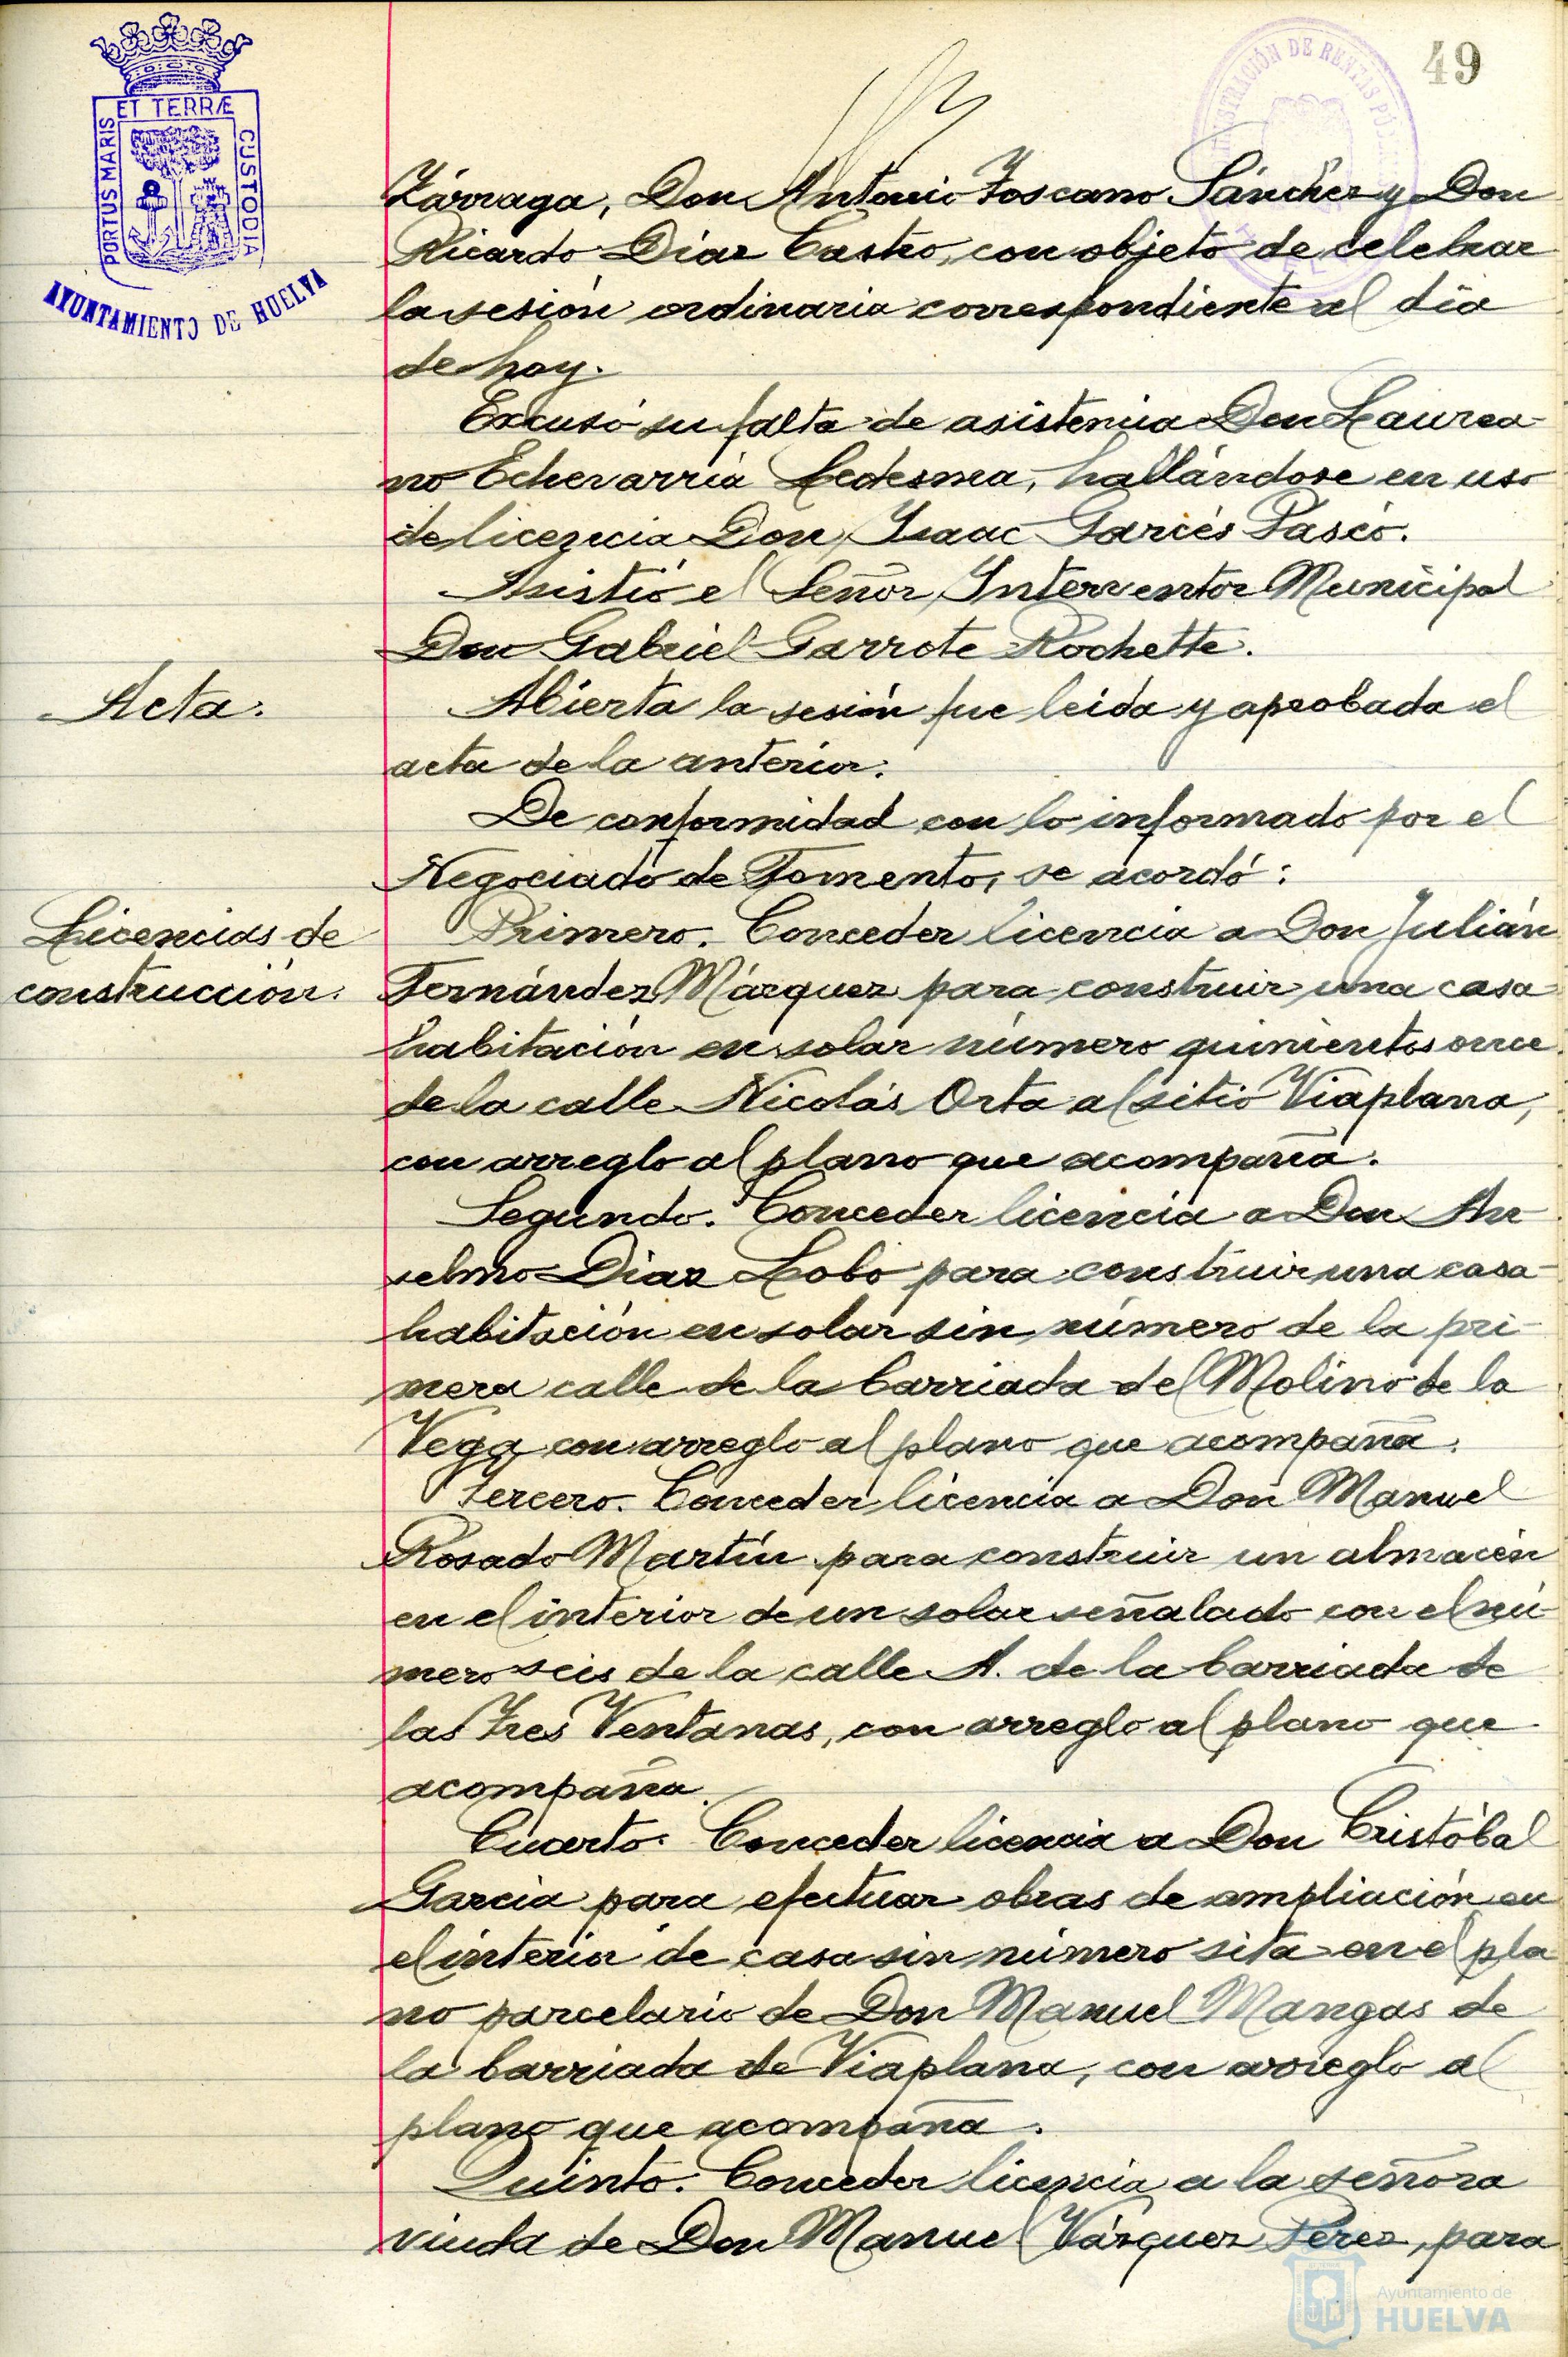 49
ET TERRÆ
PORTUS MARIS
CUSTODIA
AYUNTAMIENTO DE HUELVA
Zárraga, Don Antonio Toscano Sánchez y Don
Ricardo Díaz Castro, con objeto de celebrar
la sesión ordinaria correspondiente al día
de hoy.
Excusó su falta de asistencia Don Laurea-
no Echevarría Ledesma, hallándose en uso
de licencia Don Isaac Garcés
Asistió el Señor Interventor Municipal
Don Gabriel Garrote Rochette.
Acta.
Abierta la sesión fue leida y aprobada el
acta de la anterior.
De conformidad con lo informado por el
Negociado de Fomento, se acordó:
Licencias de
construcción.
Primero. Conceder licencia a Don Julián
Fernández Márquez para construir una casa
habitación en solar número quinientos once
de la calle Nicolás Orta al sitio Viaplana,
con arreglo al plano que acompaña.
Segundo. Conceder licencia a Don An-
selmo Díaz Lobo para construir una casa
habitación en solar sin número de la pri-
mera calle de la barriada del Molino de la
Vega con arreglo al plano que acompaña.
Tercero. Conceder licencia a Don Manuel
Rosado Martín para construir un almacén
en el interior de un solar señalado con el nú-
mero seis de la calle A. de la barriada de
las Tres Ventanas, con arreglo al plano que
acompaña.
Cuarto. Conceder licencia a Don Cristóbal
García para efectuar obras de ampliación en
el interior de casa sin número sita en el pla
no parcelario de Don Manuel Mangas de
la barriada de Viaplana, con arreglo al
plano que acompaña.
Quinto. Conceder licencia a la señora
viuda de Don Manuel Vázquez Pérez, para
Ayuntamiento de
HUELVA